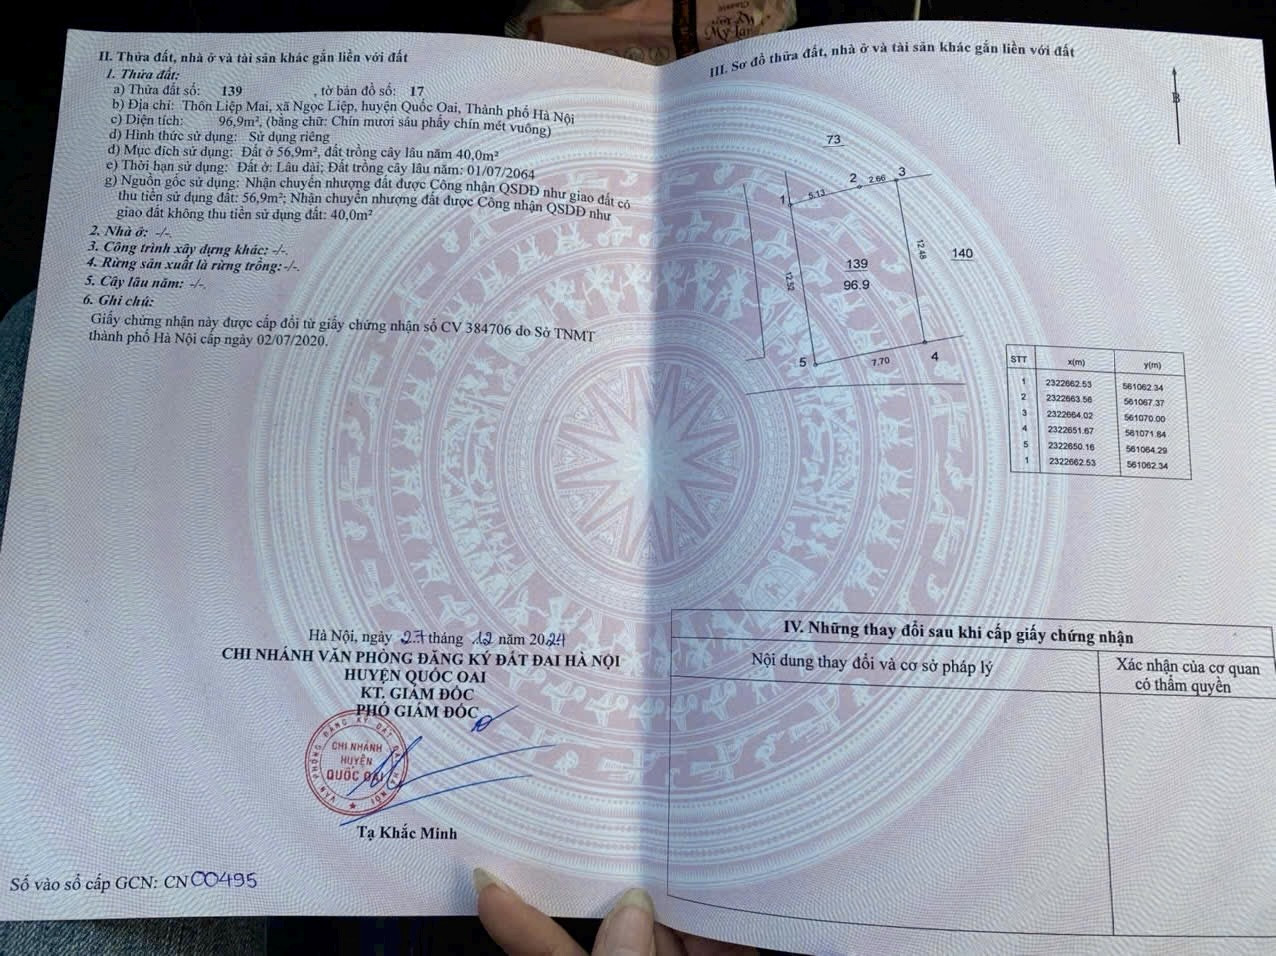 II. Thửa đất, nhà ở và tài sản khác gắn liền với đất
1. Thửa đất:
a) Thửa đất số: 139 , tờ bản đồ số: 17
b) Địa chỉ: Thôn Liệp Mai, xã Ngọc Liệp, huyện Quốc Oai, Thành phố Hà Nội
c) Diện tích: 96,9m², (bằng chữ: Chín mươi sáu phẩy chín mét vuông)
d) Hình thức sử dụng: Sử dụng riêng
đ) Mục đích sử dụng: Đất ở 56,9m², đất trồng cây lâu năm 40,0m²
e) Thời hạn sử dụng: Đất ở: Lâu dài; Đất trồng cây lâu năm: 01/07/2064
g) Nguồn gốc sử dụng: Nhận chuyển nhượng đất được Công nhận QSDĐ như giao đất có
thu tiền sử dụng đất: 56,9m²; Nhận chuyển nhượng đất được Công nhận QSDĐ như
giao đất không thu tiền sử dụng đất: 40,0m²
2. Nhà ở: -/-.
3. Công trình xây dựng khác: -/-.
4. Rừng sản xuất là rừng trồng: -/-.
5. Cây lâu năm: -/-.
6. Ghi chú:
Giấy chứng nhận này được cấp đổi từ giấy chứng nhận số CV 384706 do Sở TNMT
thành phố Hà Nội cấp ngày 02/07/2020.
Hà Nội, ngày 27 tháng 12 năm 2024
CHI NHÁNH VĂN PHÒNG ĐĂNG KÝ ĐẤT ĐAI HÀ NỘI
HUYỆN QUỐC OAI
KT. GIÁM ĐỐC
PHÓ GIÁM ĐỐC
VĂN PHÒNG ĐĂNG KÝ ĐẤT ĐAI HÀ NỘI
CHI NHÁNH
HUYỆN
QUỐC OAI
Tạ Khắc Minh
Số vào sổ cấp GCN: CN 00495
III. Sơ đồ thửa đất, nhà ở và tài sản khác gắn liền với đất
B
73
1 5.13 2 2.66 3
12.52
139
96.9
12.48
140
5 7.70 4
STT x(m) y(m)
1 2322662.53 561062.34
2 2322663.56 561067.37
3 2322664.02 561070.00
4 2322651.67 561071.84
5 2322650.16 561064.29
1 2322662.53 561062.34
IV. Những thay đổi sau khi cấp giấy chứng nhận
Nội dung thay đổi và cơ sở pháp lý
Xác nhận của cơ quan
có thẩm quyền